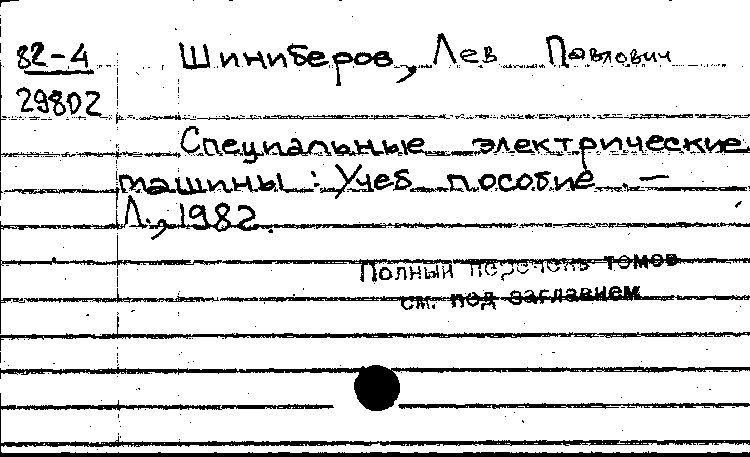 82-4 Шиниберов, Лев Павлович
29802
Специальные электрические
машины : Учеб пособие. —
Л., 1982.
Полный перечень томов
см. под заглавием